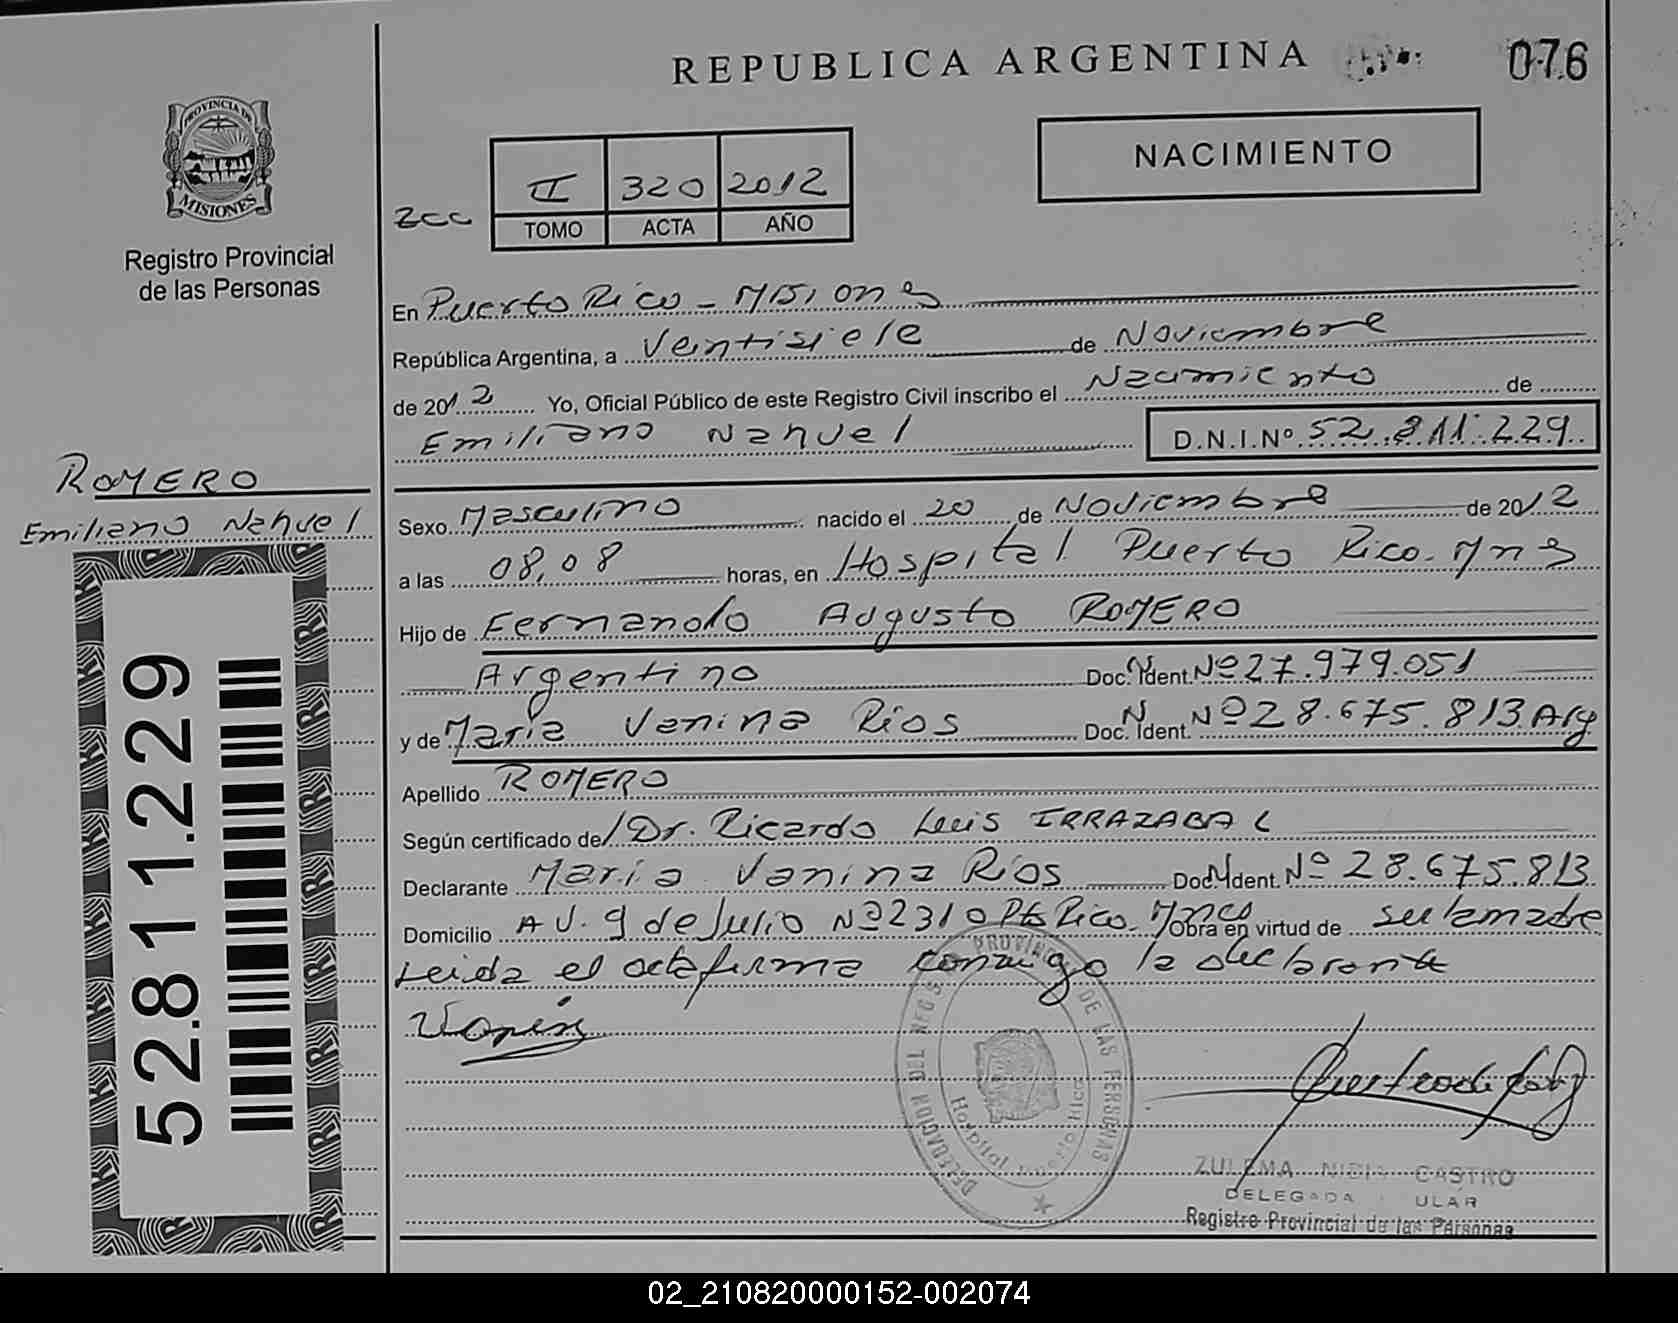 REPUBLICA ARGENTINA
076
PROVINCIA DE
MISIONES
Registro Provincial
de las Personas
NACIMIENTO
II 320 2012
TOMO ACTA AÑO
En Puerto Rico - Misiones
República Argentina, a Veintisiete de Noviembre
de 2012 Yo, Oficial Público de este Registro Civil inscribo el Nacimiento de
Emiliano Nahuel
D.N.I.Nº 52.811.229
ROMERO
Emiliano Nahuel
52.811.229
Sexo Masculino nacido el 20 de Noviembre de 2012
a las 08,08 horas, en Hospital Puerto Rico. Mnes
Hijo de Fernando Augusto ROMERO
Argentino Doc. Ident. Nº 27.979.051
y de María Vanina Ríos Doc. Ident. Nº 28.675.813 Arg
Apellido ROMERO
Según certificado de Dr. Ricardo Luis IRRAZABAL
Declarante María Vanina Ríos Doc. Ident. Nº 28.675.813
Domicilio AV. 9 de Julio Nº 2310 Pto Rico. Obra en virtud de ser la madre
Leida el acta firma conmigo la declarante
DELEGACION DEL REG PROVINCIAL DE LAS PERSONAS
Hospital Puerto Rico
ZULEMA NIDIA CASTRO
DELEGADA
Registro Provincial de las Personas
02_210820000152-002074